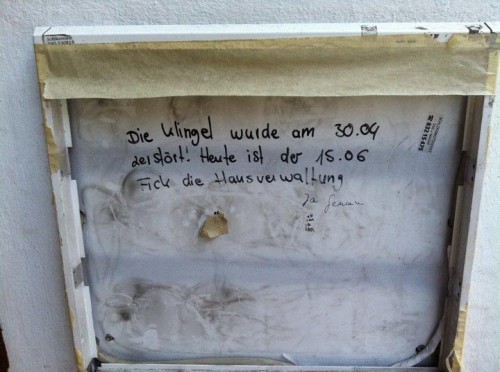 Die Klingel wurde am 30.04
zerstört! Heute ist der 15.06
Fick die Hausverwaltung
Ja genau